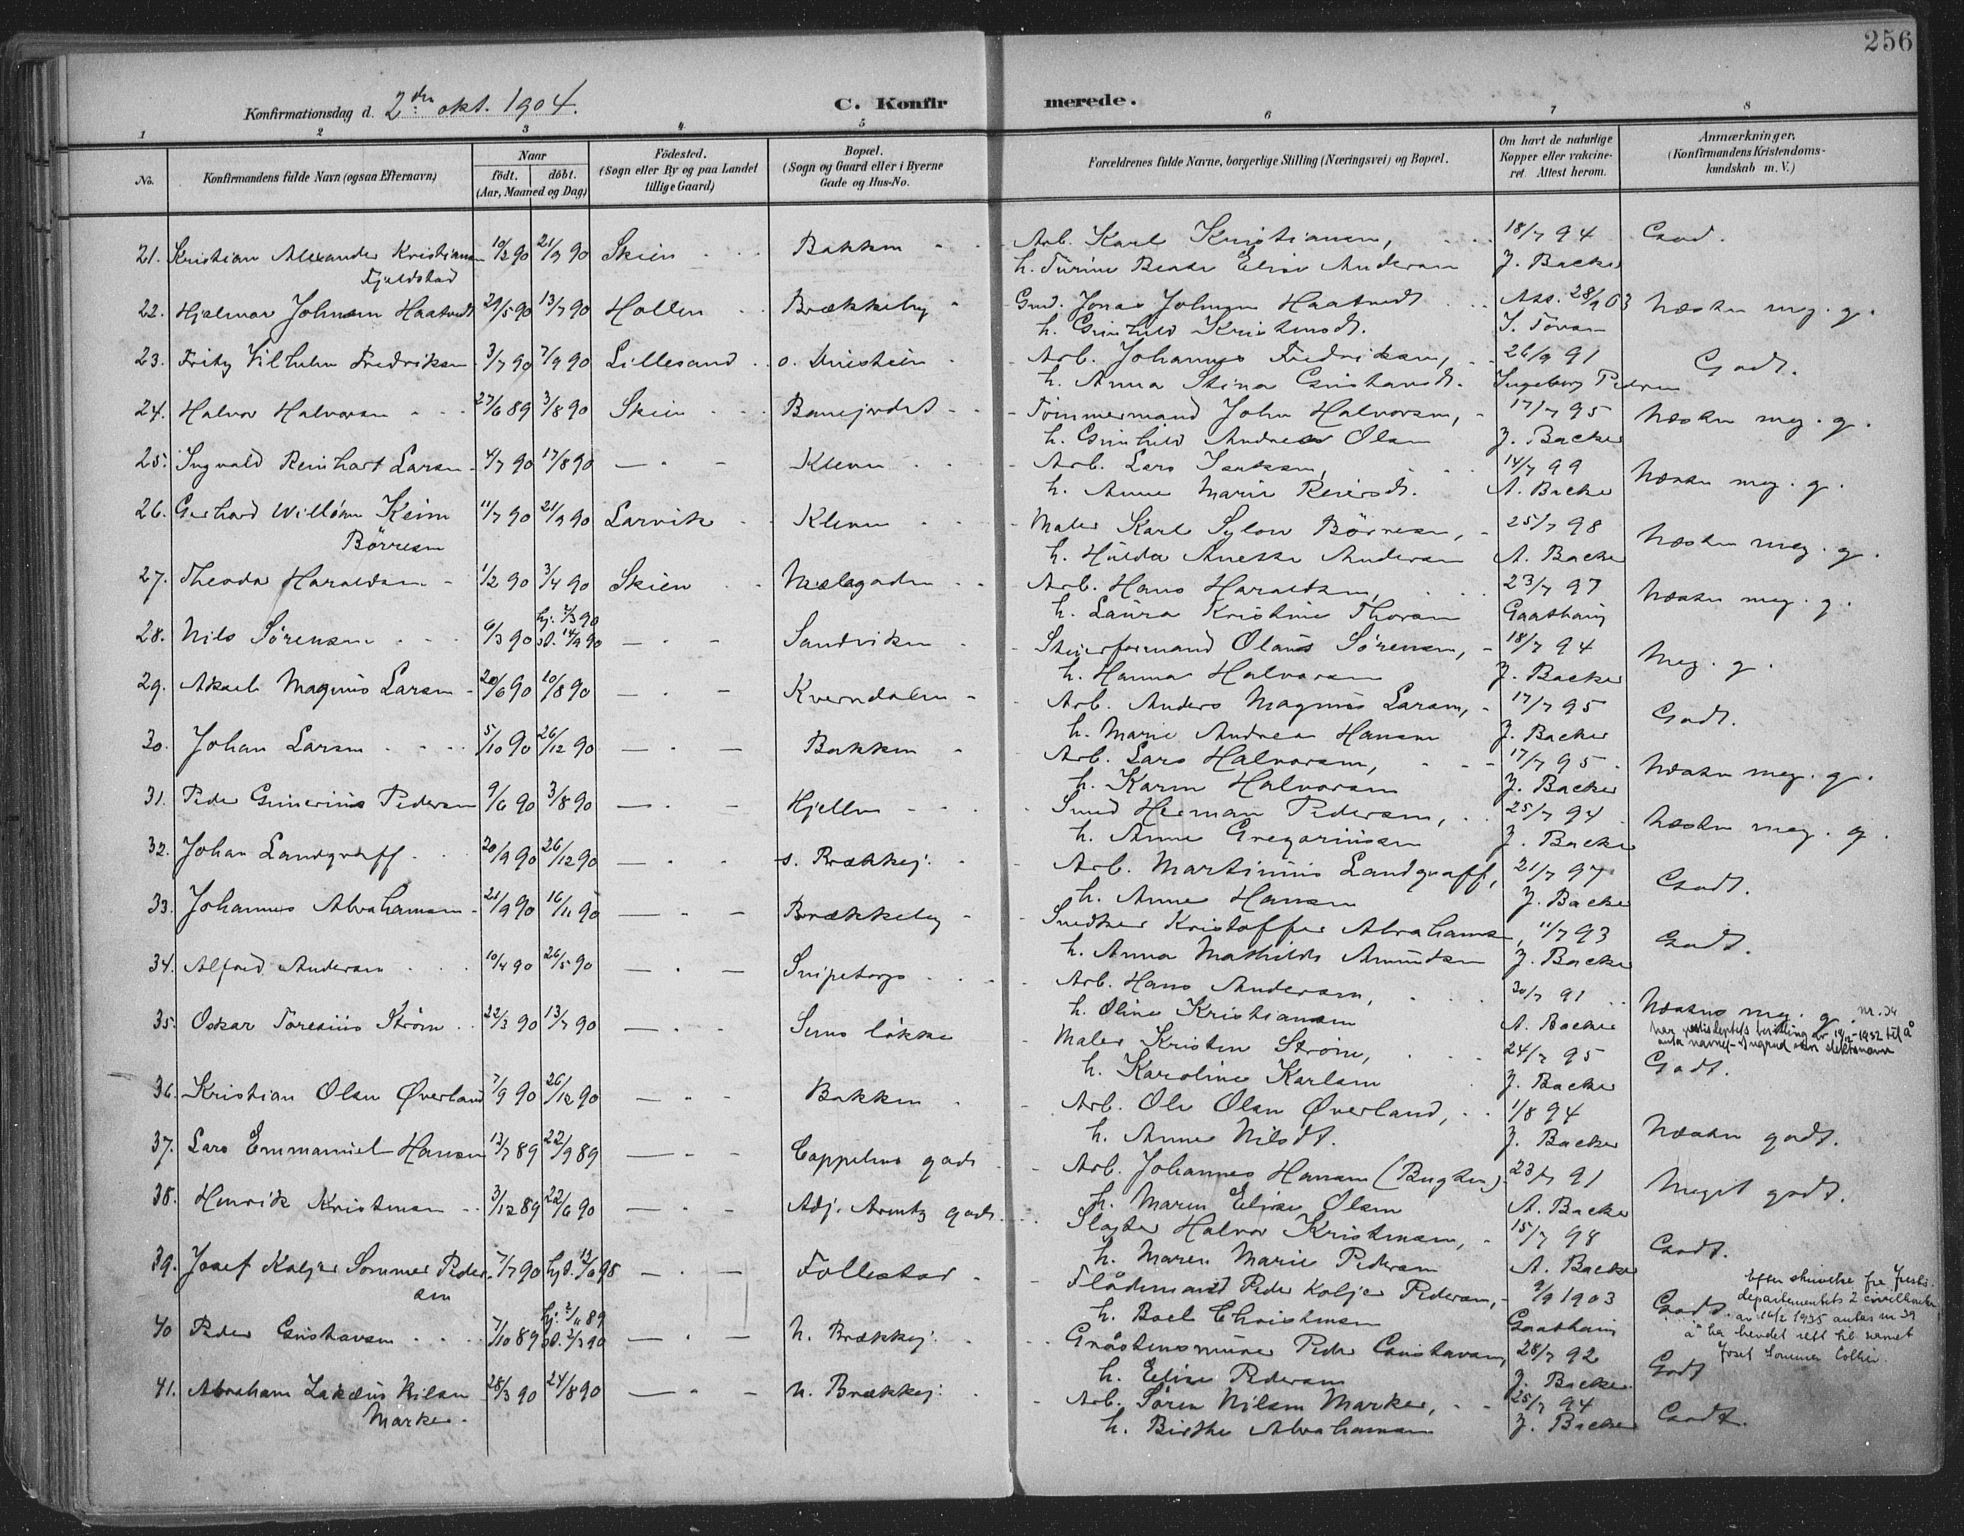 256
Konfirmationsdag d. 2den okt. 1904.
C. Konfirmerede.
1 2 3 4 5 6 7 8
No.
Konfirmandens fulde Navn (ogsaa Efternavn)
Naar
födt. döbt.
(Aar, Maaned og Dag)
Födested.
(Sogn eller By og paa Landet
tillige Gaard)
Bopæl.
(Sogn og Gaard eller i Byerne
Gade og Hus-No.
Forældrenes fulde Navne, borgerlige Stilling (Næringsvei) og Bopæl.
Om havt de naturlige
Kopper eller vakcine-
ret. Attest herom.
Anmærkninger.
(Konfirmandens Kristendoms-
kundskab m. V.)
21. Kristian Alexander Kristiansen 10/2 90 21/9 90 Skien Bakken Arb. Karl Kristiansen, 18/7 94 God.
Fjeldstad h. Turine Beate Elise Andersen J. Backer
22. Hjalmar Johnsen Haatvedt 29/5 90 13/7 90 Hollen Brækkeby Gmd. Jonas Johnsen Haatvedt Att. 28/9 03 Næsten meg. g.
h. Gunhild Kristensdt. J. Tovan
23. Fritz Vilhelm Fredriksen 3/7 90 7/9 90 Lillesand Arb. Johannes Fredriksen, 26/9 91 Godt.
h. Anna Stina Gustavsdt. Ingeborg Pedersen
24. Halvor Halvorsen 27/6 89 3/8 90 Skien Tømmermand John Halvorsen, 17/7 95 Næsten meg. g.
h. Gunhild Andrea Olsen J. Backer
25. Ingvald Reinhart Larsen 4/7 90 17/8 90 — " — Kleven Arb. Lars Isaksen, 14/7 99 Næsten meg. g.
h. Anne Marie Reiersdt. A. Backer
26. Gerhard Willum Keim 11/7 90 21/9 90 Larvik Kleven Maler Karl Sylon Børresen, 25/7 98 Næsten meg. g.
Børresen h. Hulda Anette Andersen A. Backer
27. Theodor Haraldsen 1/2 90 3/4 90 Skien Mælagaden Arb. Hans Haraldsen, 23/7 97 Næsten meg. g.
h. Laura Kristine Thorsen Gaathaug
28. Nils Sörensen 6/3 90 hj. 7/3 90 — " — Sandviken Stuerformand Olaus Sörensen, 18/7 94 Meg. g.
st. 14/9 90 h. Hanna Halvorsen J. Backer
29. Aksel Magnus Larsen 20/6 90 10/8 90 — " — Kverndalen Arb. Anders Magnus Larsen, 17/7 95 Godt.
h. Marie Andrea Hansen J. Backer
30. Johan Larsen 5/10 90 26/12 90 — " — Bakken Arb. Lars Halvorsen, 17/7 95 Næsten meg. g.
h. Karen Halvorsen J. Backer
31. Peder Gunerius Pedersen 9/6 90 3/8 90 — " — Hjellen Smed Herman Pedersen, 25/7 94 Næsten meg. g.
h. Anne Gregoriussen J. Backer
32. Johan Landgraff 20/9 90 26/12 90 — " — s. Brækkeg. Arb. Martinius Landgraff, 21/7 97 Godt.
h. Anne Hansen J. Backer
33. Johannes Abrahamsen 21/9 90 16/11 90 — " — Brækkeby Snedker Kristoffer Abrahamsen, 11/7 93 Godt.
h. Anna Mathilde Amundsen J. Backer
34. Alfred Andersen 10/4 90 26/5 90 — " — Snipetorp Arb. Hans Andersen, 30/7 91 Næsten meg. g.
h. Oline Kristiansen A. Backer
nr. 34 har justisdeptets bevilling av 14/12-1932 til å
anta navnet Ingrad som slektsnavn
35. Oskar Toresius Strøm 22/3 90 13/7 90 — " — Sems løkke Maler Kristen Strøm, 24/7 95 Godt.
h. Karoline Karlsen J. Backer
36. Kristian Olsen Øverland 7/9 90 26/12 90 — " — Bakken Arb. Ole Olsen Øverland, 1/8 94 Næsten godt.
h. Anne Nilsdt. J. Backer
37. Lars Emmanuel Hansen 13/7 89 22/9 89 — " — Cappelens gade Arb. Johannes Hansen (Bugten) 23/7 91 Meget godt.
h. Maren Elise Olsen A. Backer
38. Henrik Kristensen 3/12 89 22/6 90 — " — Adj. Arentz gade Slagter Halvor Kristensen, 15/7 98 Godt.
h. Maren Marie Pedersen A. Backer
39. Josef Koljer Sommer Peder- 7/7 90 hjd. 12/6 98 — " — Follestad Flådemand Peder Koljer Pedersen, 9/9 1903 Godt.
sen h. Boel Christensen Gaathaug
Efter skrivelse fra Justis-
departementets 2 civilkontor
av 16/2 1935 antas nr 39
å ha hevdet rett til navnet
Josef Sommer Collier.
40 Peder Gustavsen 7/10 89 hj. 2/11 89 — " — n. Brækkeg: Gråstensmurer Peder Gustavsen, 28/7 92 Godt
st. 2/3 90 h. Elise Pedersen J. Backer
41. Abraham Zakæus Nilsen 28/3 90 24/8 90 — " — n. Brækkeg: Arb. Sören Nilsen Marker, 25/7 94 Godt.
Marker. h. Birthe Abrahamsen J. Backer